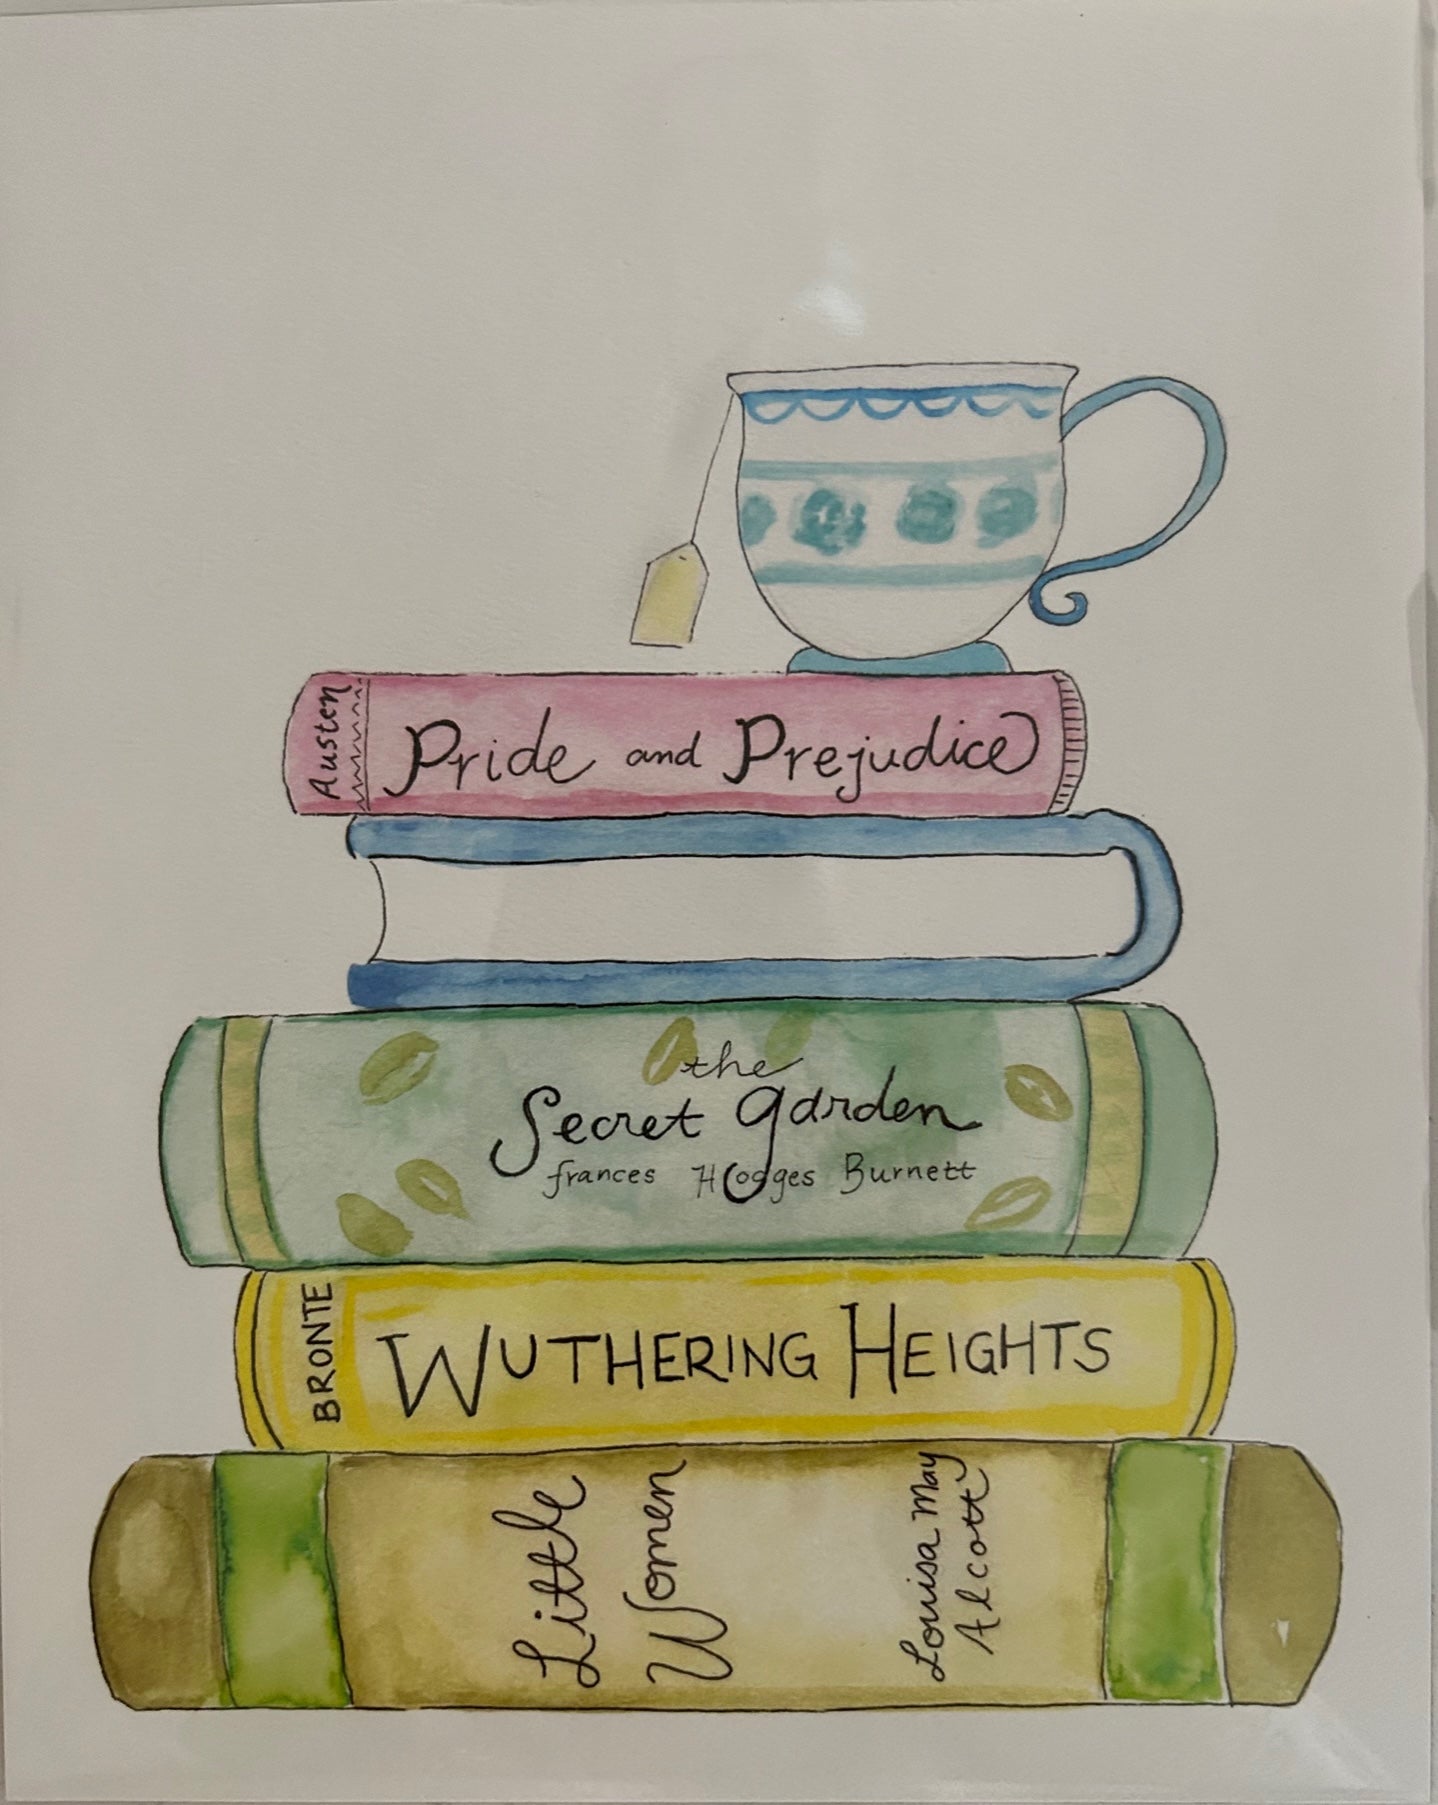 Austen
Pride and Prejudice
the
Secret garden
frances Hodges Burnett
BRONTE
WUTHERING HEIGHTS
Little
Women
Louisa May
Alcott